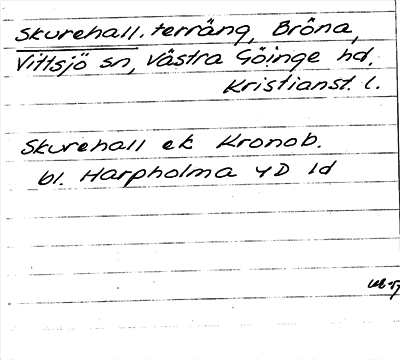 Skurehall. terräng, Bröna,
Vittsjö sn, Västra Göinge hd.
Kristianst. l.
Skurehall ek Kronob.
bl. Harpholma 4D 1d